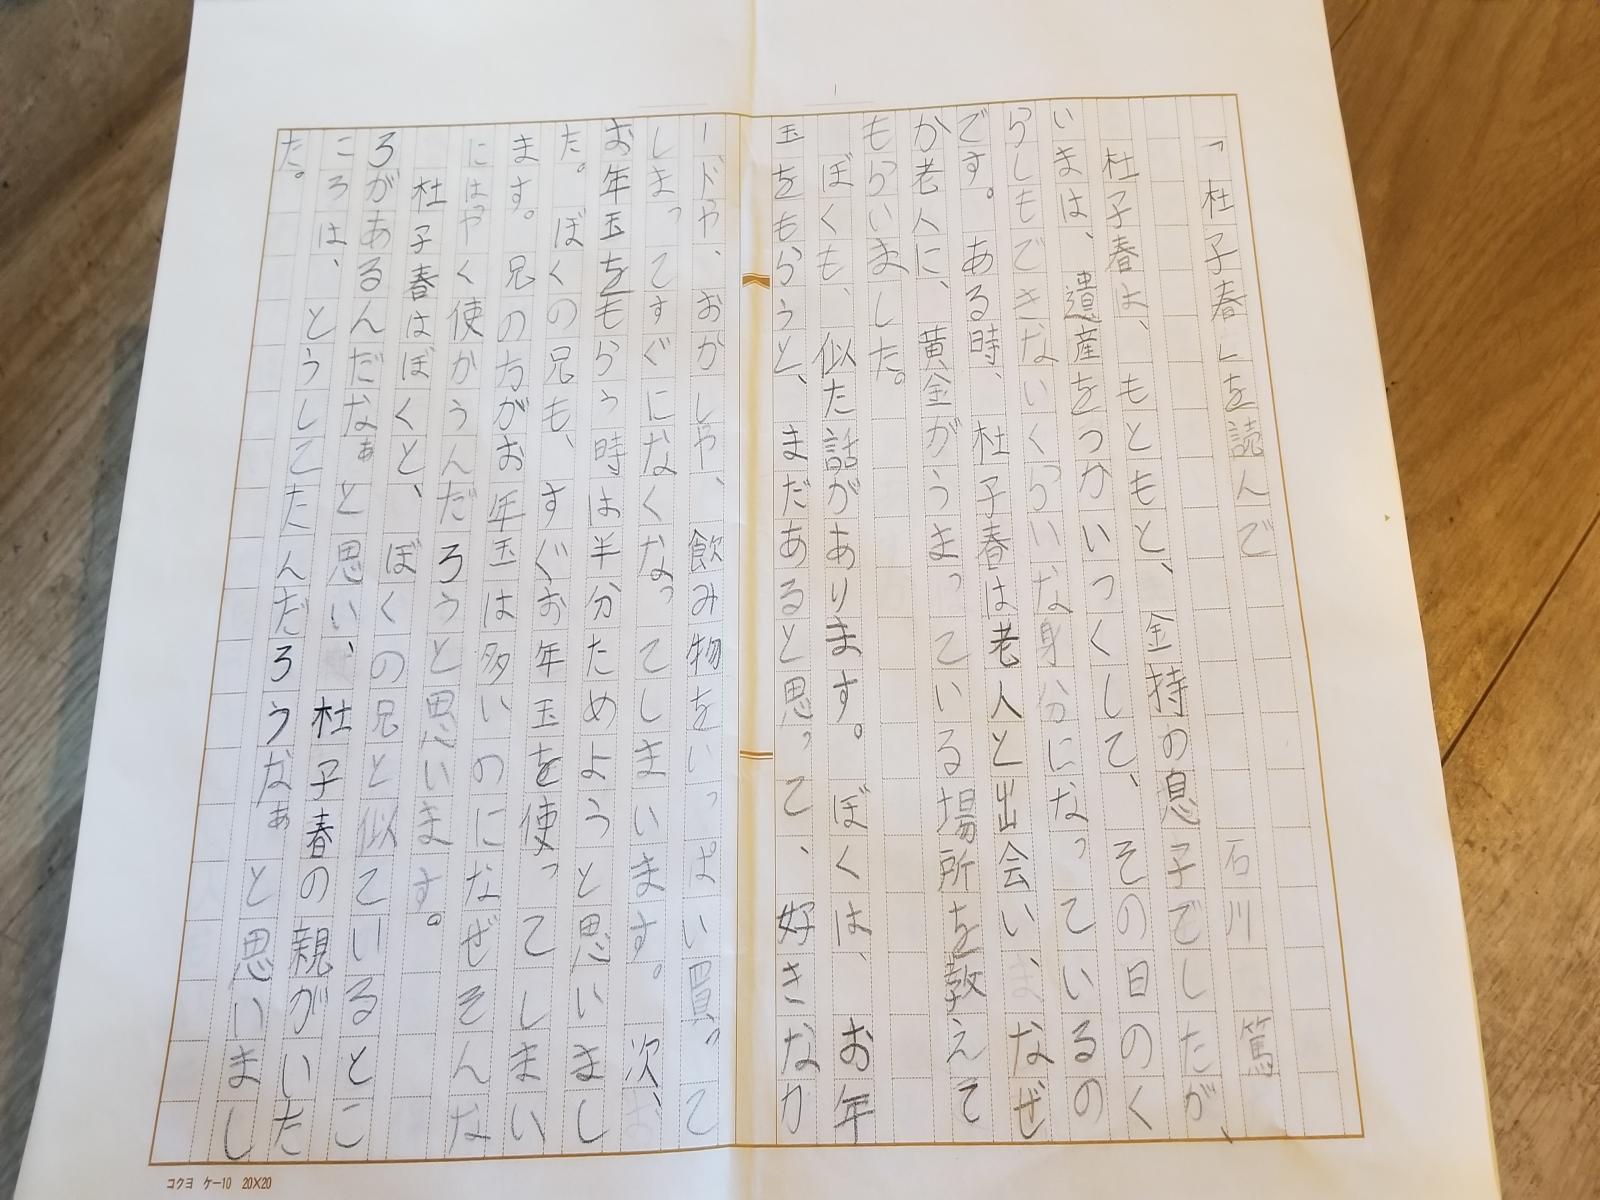 「杜子春」を読んで
石川 篤
杜子春は、もともと、金持の息子でしたが、
いまは、遺産をつかいつくして、その日のく
らしもできないくらいな身分になっているの
です。ある時、杜子春は老人と出会い、なぜ
か老人に、黄金がうまっている場所を教えて
もらいました。
ぼくも、似た話があります。ぼくは、お年
玉をもらうと、まだあると思って、好きなカ
ードや、おかしや、飲み物をいっぱい買って
しまってすぐになくなってしまいます。次、
お年玉をもらう時は半分ためようと思いまし
た。ぼくの兄も、すぐお年玉を使ってしまい
ます。兄の方がお年玉は多いのになぜそんな
にはやく使かうんだろうと思います。
杜子春はぼくと、ぼくの兄と似ているとこ
ろがあるんだなぁと思い、杜子春の親がいた
ころは、とうしてたんだろうなぁと思いまし
た。
コクヨ ケー10 20×20